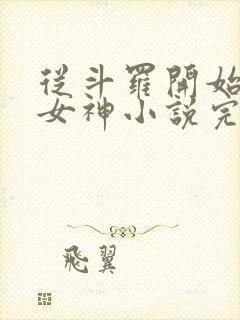 從斗羅開始
女神小說完
飛翼